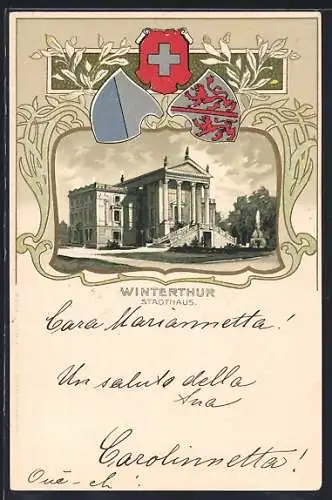 WINTERTHUR
STADTHAUS.
Cara Mariannetta!
Un saluto della
Sua
Carolinnetta!